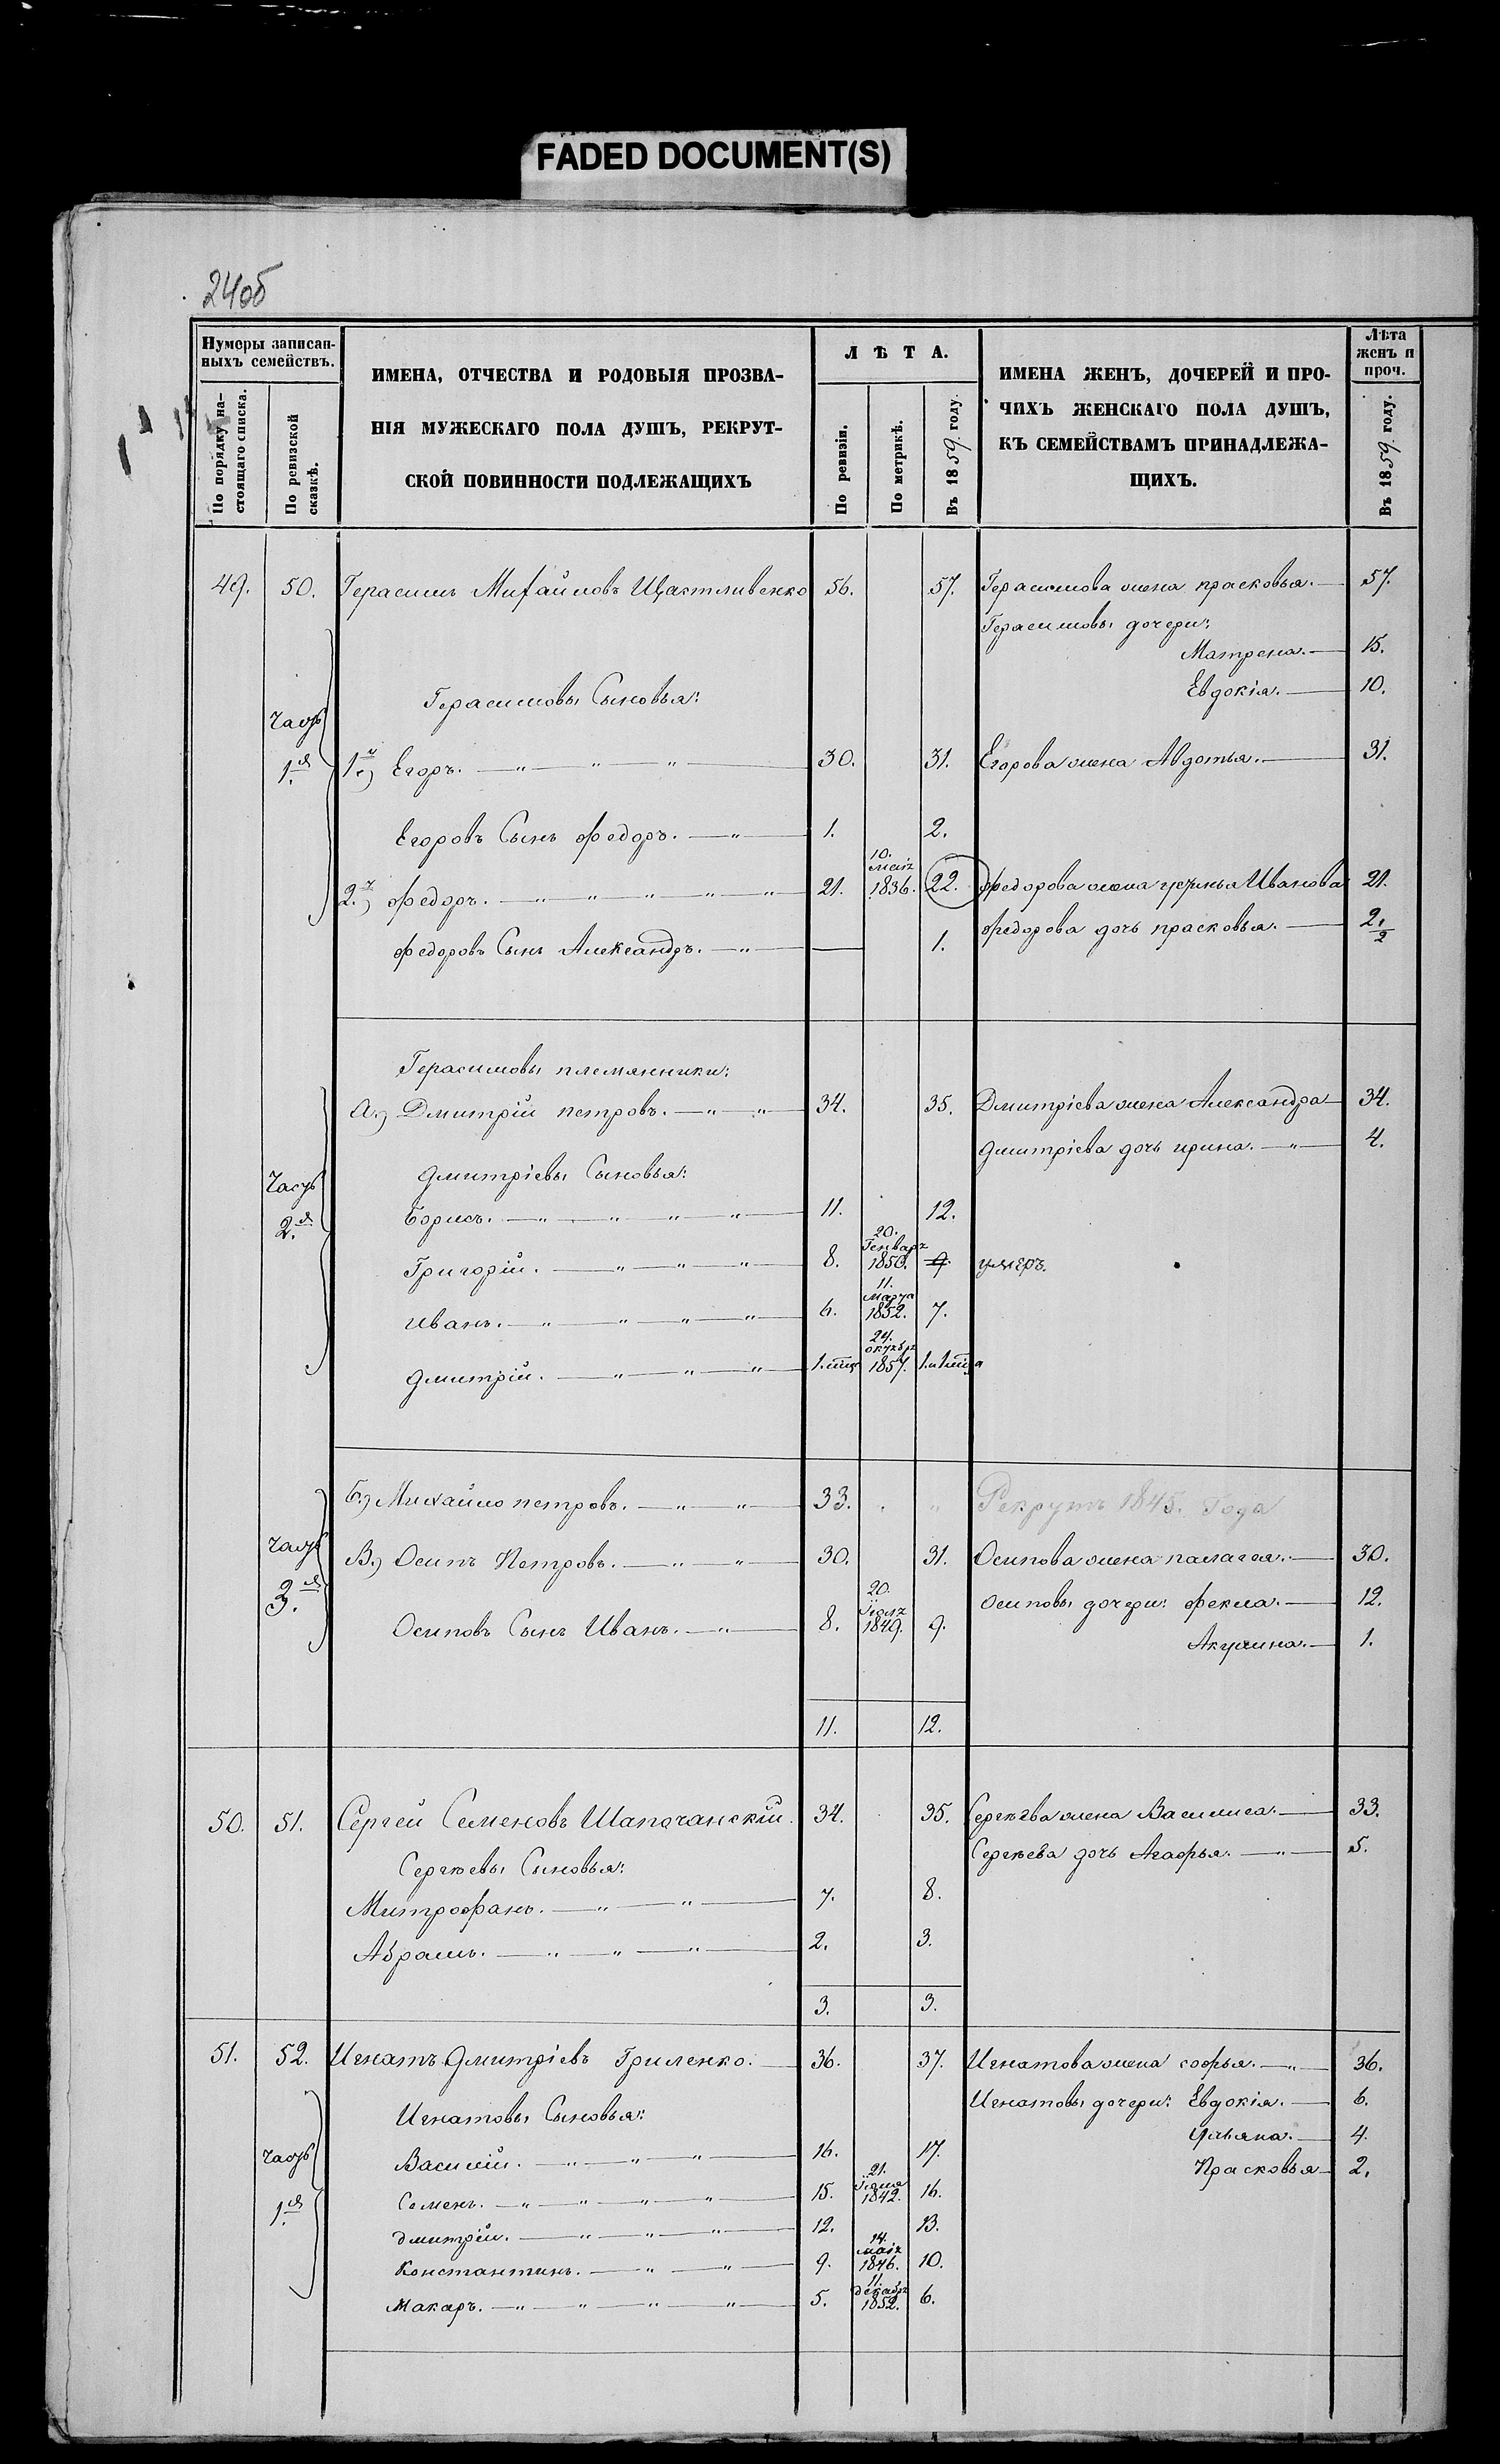 FADED DOCUMENT(S)
24об
Нумеры записан-
ныхъ семействъ.
По порядку на-
стоящаго списка.
По ревизской
сказкѣ.
ИМЕНА, ОТЧЕСТВА И РОДОВЫЯ ПРОЗВА-
НІЯ МУЖЕСКАГО ПОЛА ДУШЪ, РЕКРУТ-
СКОЙ ПОВИННОСТИ ПОДЛЕЖАЩИХЪ
ЛѢТА.
По ревизіи.
По метрикѣ.
Въ 1859 году.
ИМЕНА ЖЕНЪ, ДОЧЕРЕЙ И ПРО-
ЧИХЪ ЖЕНСКАГО ПОЛА ДУШЪ,
КЪ СЕМЕЙСТВАМЪ ПРИНАДЛЕЖА-
ЩИХЪ.
Лѣта
женъ и
проч.
Въ 1859 году.
49. 50. Герасимъ Михайловъ Щастливенко 56. 57. Герасимова жена прасковья. 57.
Герасимовы дочери:
Матрена. 15.
Герасимовы Сыновья: Евдокія. 10.
Часть
1.я
1.й) Егоръ. 30. 31. Егорова жена Авдотья. 31.
Егоровъ Сынъ федоръ. 1. 2.
2.й) федоръ. 21. 10. маія 1836. 22. федорова жена устинья Иванова 21.
федорова дочь прасковья. 2.
2
федоровъ Сынъ Александръ. 1.
Герасимовы племянники:
А.) Дмитрій петровъ. 34. 35. Дмитріева жена Александра 34.
Дмитріева дочь ирина. 4.
Часть
2.я
Дмитріевы Сыновья:
Борисъ. 11. 12.
Григорій. 8. 20. Генваря 1850. 9 умеръ.
иванъ. 6. 11. Марта 1852. 7.
дмитрій. 24. октября 1857.
Б.) Михайло петровъ. 33. Рекрутъ 1845. Года
Часть
3.я
В.) Осипъ Петровъ. 30. 31. Осипова жена палагея. 30.
Осиповы дочери: фекла. 12.
Осиповъ Сынъ Иванъ. 8. 20. 1849. 9.
Акулина. 1.
11. 12.
50. 51. Сергей Семеновъ Шапочанскій. 34. 35. Сергѣева жена Василиса. 33.
Сергѣева дочь Агафья. 5.
Сергѣевы Сыновья:
Митрофанъ. 7. 8.
Абрамъ. 2. 3.
3. 3.
51. 52. Игнатъ Дмитріевъ Гриленко. 36. 37. Игнатова жена софья. 36.
Игнатовы дочери: Евдокія. 6.
Игнатовы Сыновья:
Ульяна. 4.
Часть
1.я
Василій. 16. 17.
Прасковья 2.
Семенъ. 15. 21. 1842. 16.
дмитрій. 12. 13.
Константинъ. 9. 14. маія 1846. 10.
Макаръ. 5. 11. декабря 1852. 6.